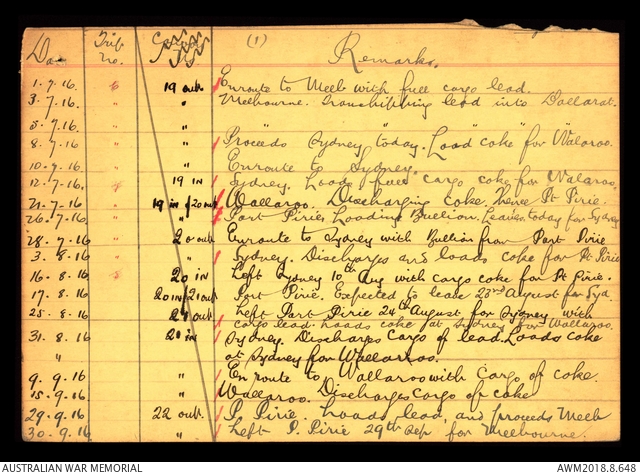 (1)
Trip no. Remarks.
1.7.16 " 19 out Enroute to Melb with full cargo lead.
3.7.16. " " Melbourne. Transhipping lead into Ballarat.
5.7.16. " "
8.7.16 " " Proceeds Sydney today. Load "coke" for Walaroo.
10.7.16 " Enroute to Sydney.
12.7.16. " 19 IN Sydney. Loads full cargo coke for Walaroo,
21.7.16 " 19 in / 20 out Wallaroo. Discharging Coke. Thence Pt Pirie.
26.7.16. " " Port Pirie, Loading Bullion. Leaves today for Sydney
28.7.16 20 out Enroute to Sydney with Bullion from Port Pirie
3.8.16 " " Sydney. Discharges and loads coke for Pt Pirie
16.8.16 " 20 IN Left Sydney 10th Aug with cargo coke for Pt Pirie.
17.8.16 20 IN / 21 out Port Pirie. Expected to leave 23rd August for Syd.
25.8.16 21 out Left Port Pirie 24th August for Sydney with
cargo lead. Loads coke at Sydney for Wallaroo.
31.8.16 21 in Sydney. Discharges Cargo of lead. Loads coke
" at Sydney for Wallaroo.
9.9.16 " En route to Wallaroo with Cargo of coke.
15.9.16 " Wallaroo. Discharges cargo of coke
29.9.16 22 out. P. Pirie. Loads lead, and proceeds Melb
30.9.16 " Left P. Pirie 29th Sep for Melbourne.
AUSTRALIAN WAR MEMORIAL AWM2018.8.648